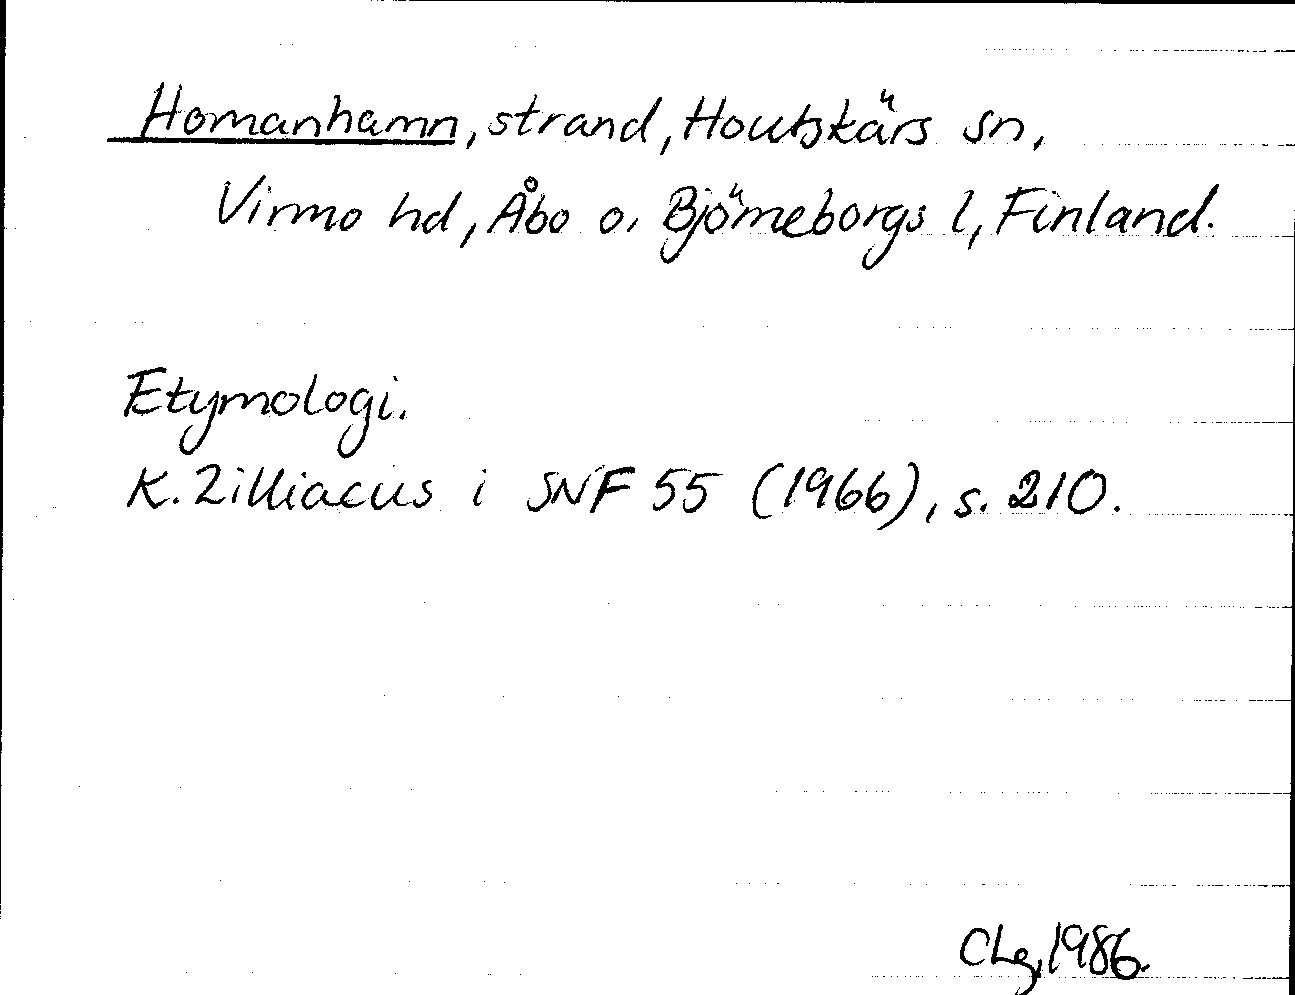 Homanhamn, strand, Houtskärs sn,
Virmo hd, Åbo o. Björneborgs l, Finland.
Etymologi.
K. Zilliacus i SNF 55 (1966), s. 210.
CLg, 1986.